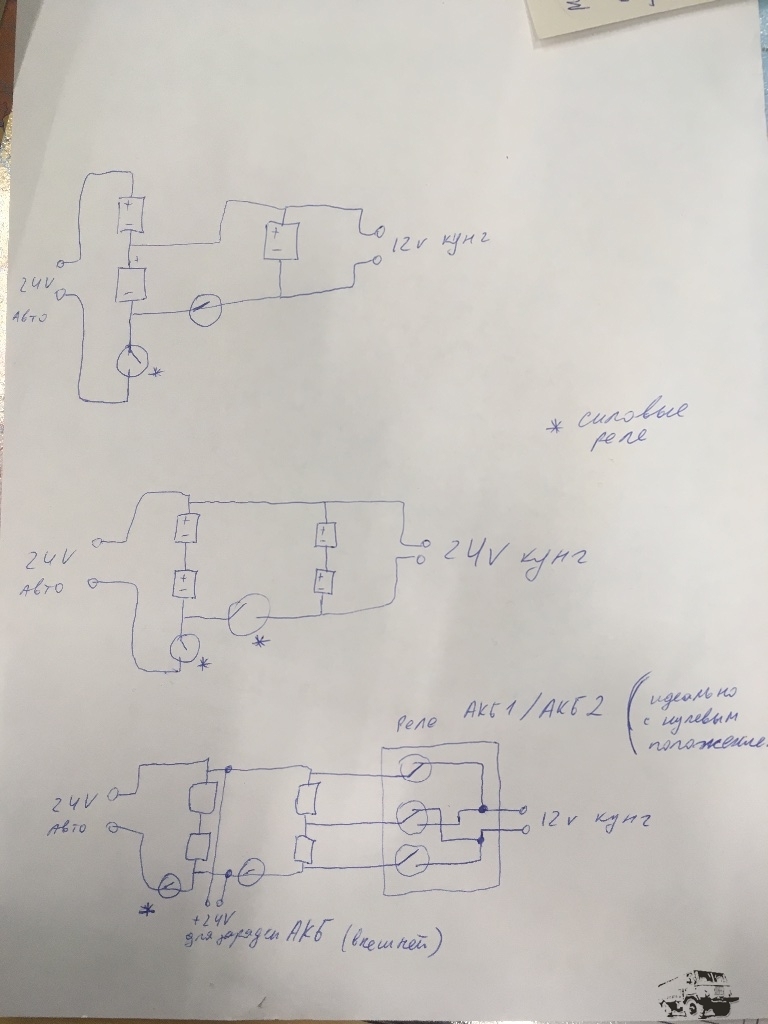 12v кунг
24V
Авто
* силовые
реле
24V
Авто
24V кунг
*
*
*
Реле АКБ1/АКБ2 (идеально
с нулевым
24V
Авто
12v кунг
*
+24V
для зарядки АКБ (внешней)